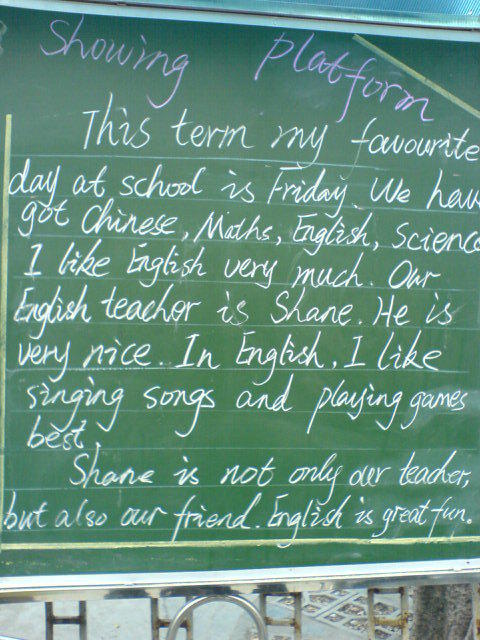 Showing Platform
This term my favourite
day at school is Friday. We have
got Chinese, Maths, English, Science
I like English very much. Our
English teacher is Shane. He is
very nice. In English, I like
singing songs and playing games
best.
Shane is not only our teacher,
but also our friend. English is great fun.